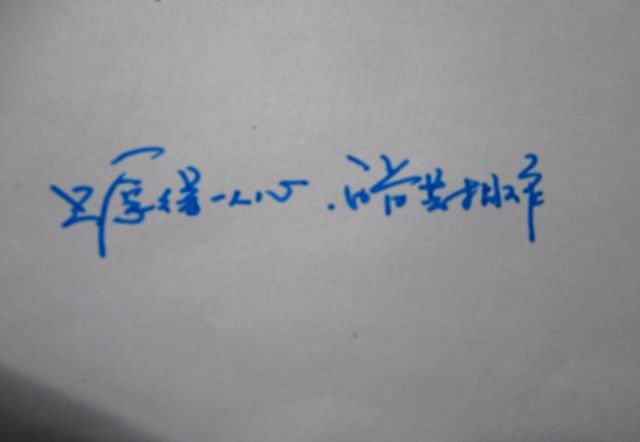 只愿得一人心.白首共相守